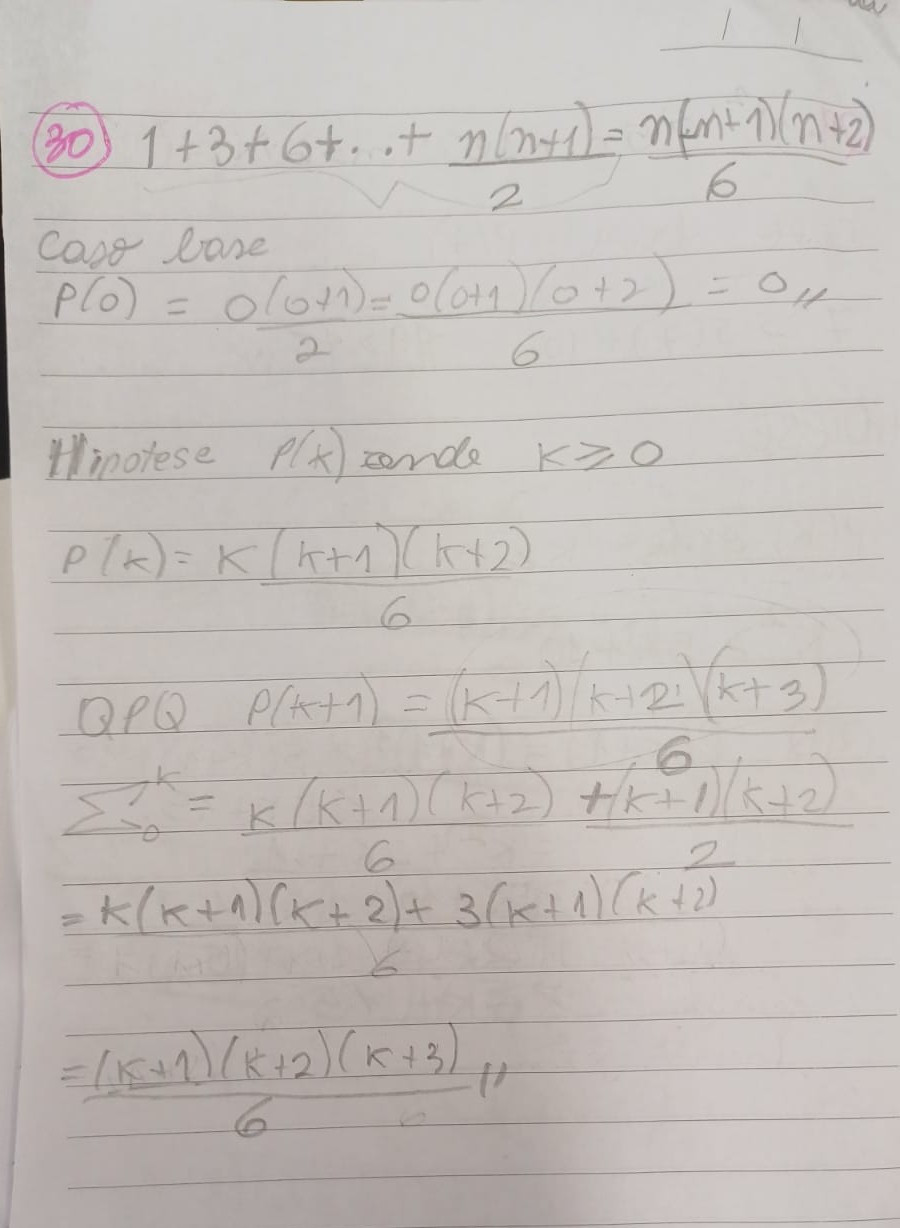 30 1+3+6+...+ n(n+1)/2 = n(n+1)(n+2)/6
Caso base
P(0) = 0(0+1)/2 = 0(0+1)(0+2)/6 = 0,,
Hipotese P(k) sende K ≥ 0
P(k) = K(k+1)(k+2)/6
QPQ P(k+1) = (k+1)(k+2)(k+3)/6
∑₀ᵏ = k(k+1)(k+2)/6 + (k+1)(k+2)/2
= k(k+1)(k+2)+3(k+1)(k+2)/6
= (k+1)(k+2)(k+3)/6 ,,